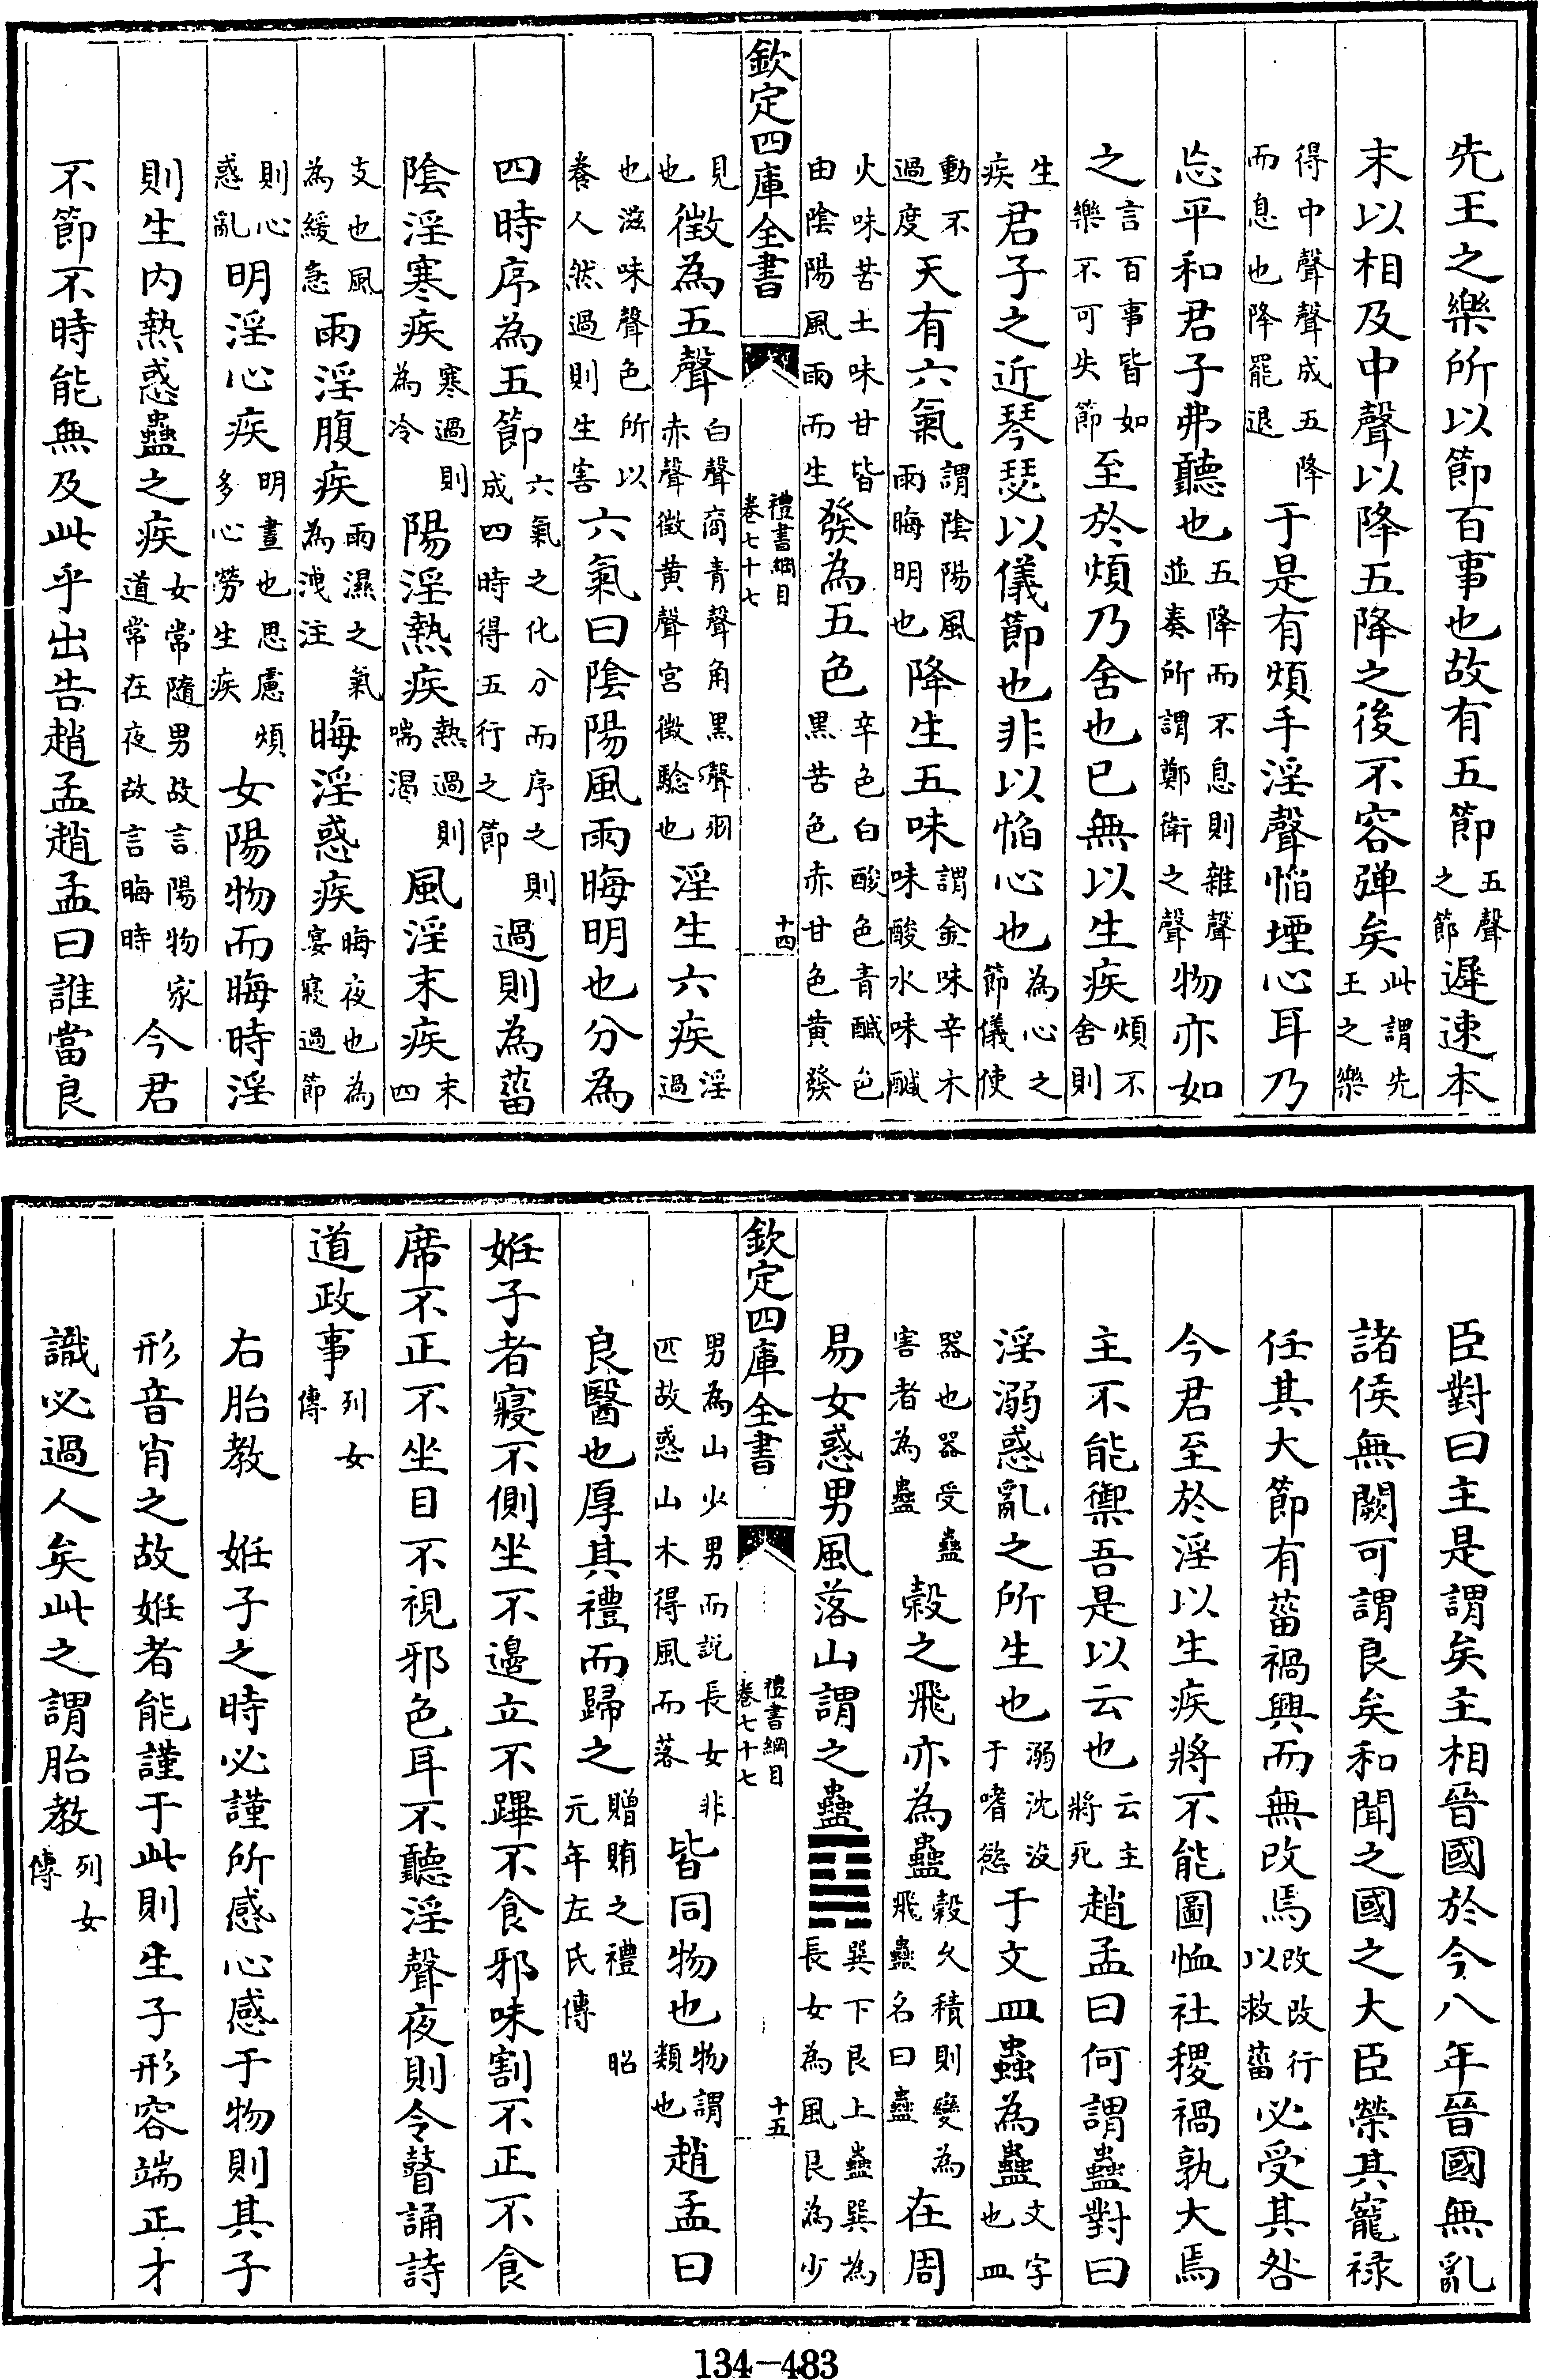 先王之樂所以節百事也故有五節五聲之節遲速本
末以相及中聲以降五降之後不容弹矣此謂先王之樂
得中聲聲成五降而息也降罷退于是有煩手淫聲慆堙心耳乃
忘平和君子弗聽也五降而不息則雜聲並奏所謂鄭衛之聲物亦如
之言百事皆如樂不可失節至於煩乃舍也已無以生疾煩不舍則
生疾君子之近琴瑟以儀節也非以慆心也為心之節儀使
動不過度天有六氣謂陰陽風雨晦明也降生五味謂金味辛木味酸水味鹹
火味苦土味甘皆由陰陽風雨而生發為五色辛色白酸色青鹹色黑苦色赤甘色黄發
欽定四庫全書 禮書綱目卷七十七 十四
見也徵為五聲白聲商青聲角黑聲羽赤聲徵黄聲宮徵驗也淫生六疾淫過
也滋味聲色所以養人然過則生害六氣曰陰陽風雨晦明也分為
四時序為五節六氣之化分而序之則成四時得五行之節過則為菑
陰淫寒疾寒過則為冷陽淫熱疾熱過則喘渴風淫末疾末四
支也風為緩急雨淫腹疾雨濕之氣為洩注晦淫惑疾晦夜也為宴寢過節
則心惑亂明淫心疾明晝也思慮煩多心勞生疾女陽物而晦時淫
則生内熱惑蠱之疾女常隨男故言陽物家道常在夜故言晦時今君
不節不時能無及此乎出告趙孟趙孟曰誰當良
臣對曰主是謂矣主相晉國於今八年晉國無亂
諸侯無闕可謂良矣和聞之國之大臣榮其寵禄
任其大節有菑禍興而無改焉改改行以救菑必受其咎
今君至於淫以生疾將不能圖恤社稷禍孰大焉
主不能禦吾是以云也云主將死趙孟曰何謂蠱對曰
淫溺惑亂之所生也溺沈没于嗜慾于文皿蟲為蠱文字也皿
器也器受蠱害者為蠱穀之飛亦為蠱穀久積則變為飛蠱名曰蠱在周
易女惑男風落山謂之蠱䷑巽下艮上蠱巽為長女為風艮為少
欽定四庫全書 禮書綱目卷七十七 十五
男為山少男而説長女非匹故惑山木得風而落皆同物也物謂類也趙孟曰
良醫也厚其禮而歸之贈賄之禮昭元年左氏傳
姙子者寢不側坐不邉立不蹕不食邪味割不正不食
席不正不坐目不視邪色耳不聽淫聲夜則令瞽誦詩
道政事列女傳
右胎教 姙子之時必謹所感心感于物則其子
形音肖之故姙者能謹于此則生子形容端正才
識必過人矣此之謂胎教列女傳
134-483